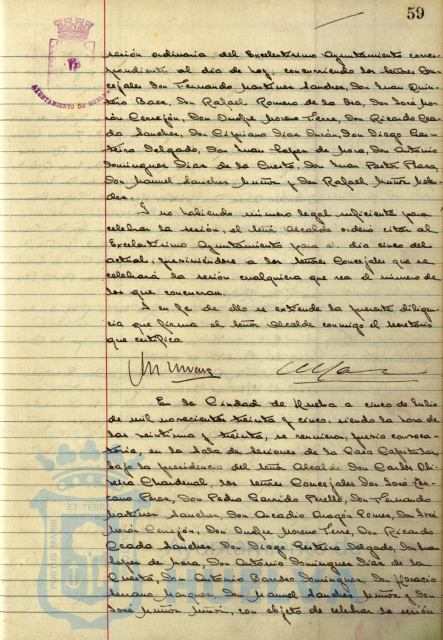 59
AYUNTAMIENTO DE
sesión ordinaria del Excelentísimo Ayuntamiento corres-
pondiente al día de hoy, concurriendo los señores Con-
cejales Don Fernando Martínez Sánchez, Don Juan Quin-
tero Baez, Don Rafael Romero de la Osa, Don José Mo-
rón Cerejón, Don Andrés Moreno Terre, Don Ricardo Cea-
da Sánchez, Don Cipriano Díaz Durán, Don Diego Gu-
tiérrez Delgado, Don Juan López de Mora, Don Antonio
Domínguez Díaz de la Cuesta, Don Juan Pastor Plaza,
Don Manuel Sánchez Muñoz y Don Rafael Muñoz
Y no habiendo número legal suficiente para
celebrar la sesión, el señor Alcalde ordenó citar al
Excelentísimo Ayuntamiento para el día cinco del
actual, previniéndose a los señores Concejales que se
celebrará la sesión cualquiera que sea el número de
los que concurran.
Y en fe de ello se extiende la presente diligen-
cia que firma el señor Alcalde conmigo el Secretario
que certifica.
En la Ciudad de Huelva a cinco de Julio
de mil novecientos treinta y cinco, siendo la hora de
las veintiuna y treinta, se reunieron, previa convoca-
toria, en la Sala de Sesiones de la Casa Capitular,
bajo la presidencia del señor Alcalde Don Carlos Oli-
veira Chardenal, los señores Concejales Don José
Pérez, Don Pedro Garrido Perelló, Don Fernando
Martínez Sánchez, Don Arcadio Aragón Gómez, Don José
Morón Cerejón, Don Andrés Moreno Terre, Don Ricardo
Ceada Sánchez, Don Diego Gutiérrez Delgado, Don Juan
López de Mora, Don Antonio Domínguez Díaz de la
Cuesta, Don Antonio Barroso Domínguez, Don Horacio
Serrano Márquez, Don Manuel Sánchez Muñoz y Don
José Muñoz Muñoz, con objeto de celebrar la sesión
PORTUS MARIS ET TERRAE